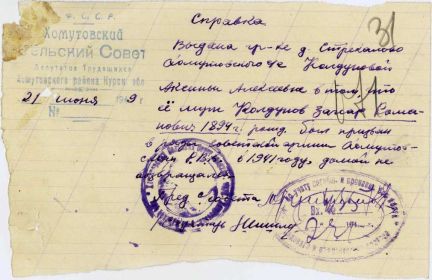 Р.С.Ф.С.Р.
Хомутовский
Сельский Совет
Депутатов Трудящихся
Хомутовского района Курск. обл
21 июня 9
№
31
Справка
Выдана гр-ке д. Стрекалово
Хомутовского с/с Колдуновой
Аксиньи Алексеевне в том, что
её муж Колдунов Захар
1894 г. рожд. был призван
в ряды советской армии Хомутов-
ским Р.В.К. в 1941 году, домой не
возвращался
Пред с/совета